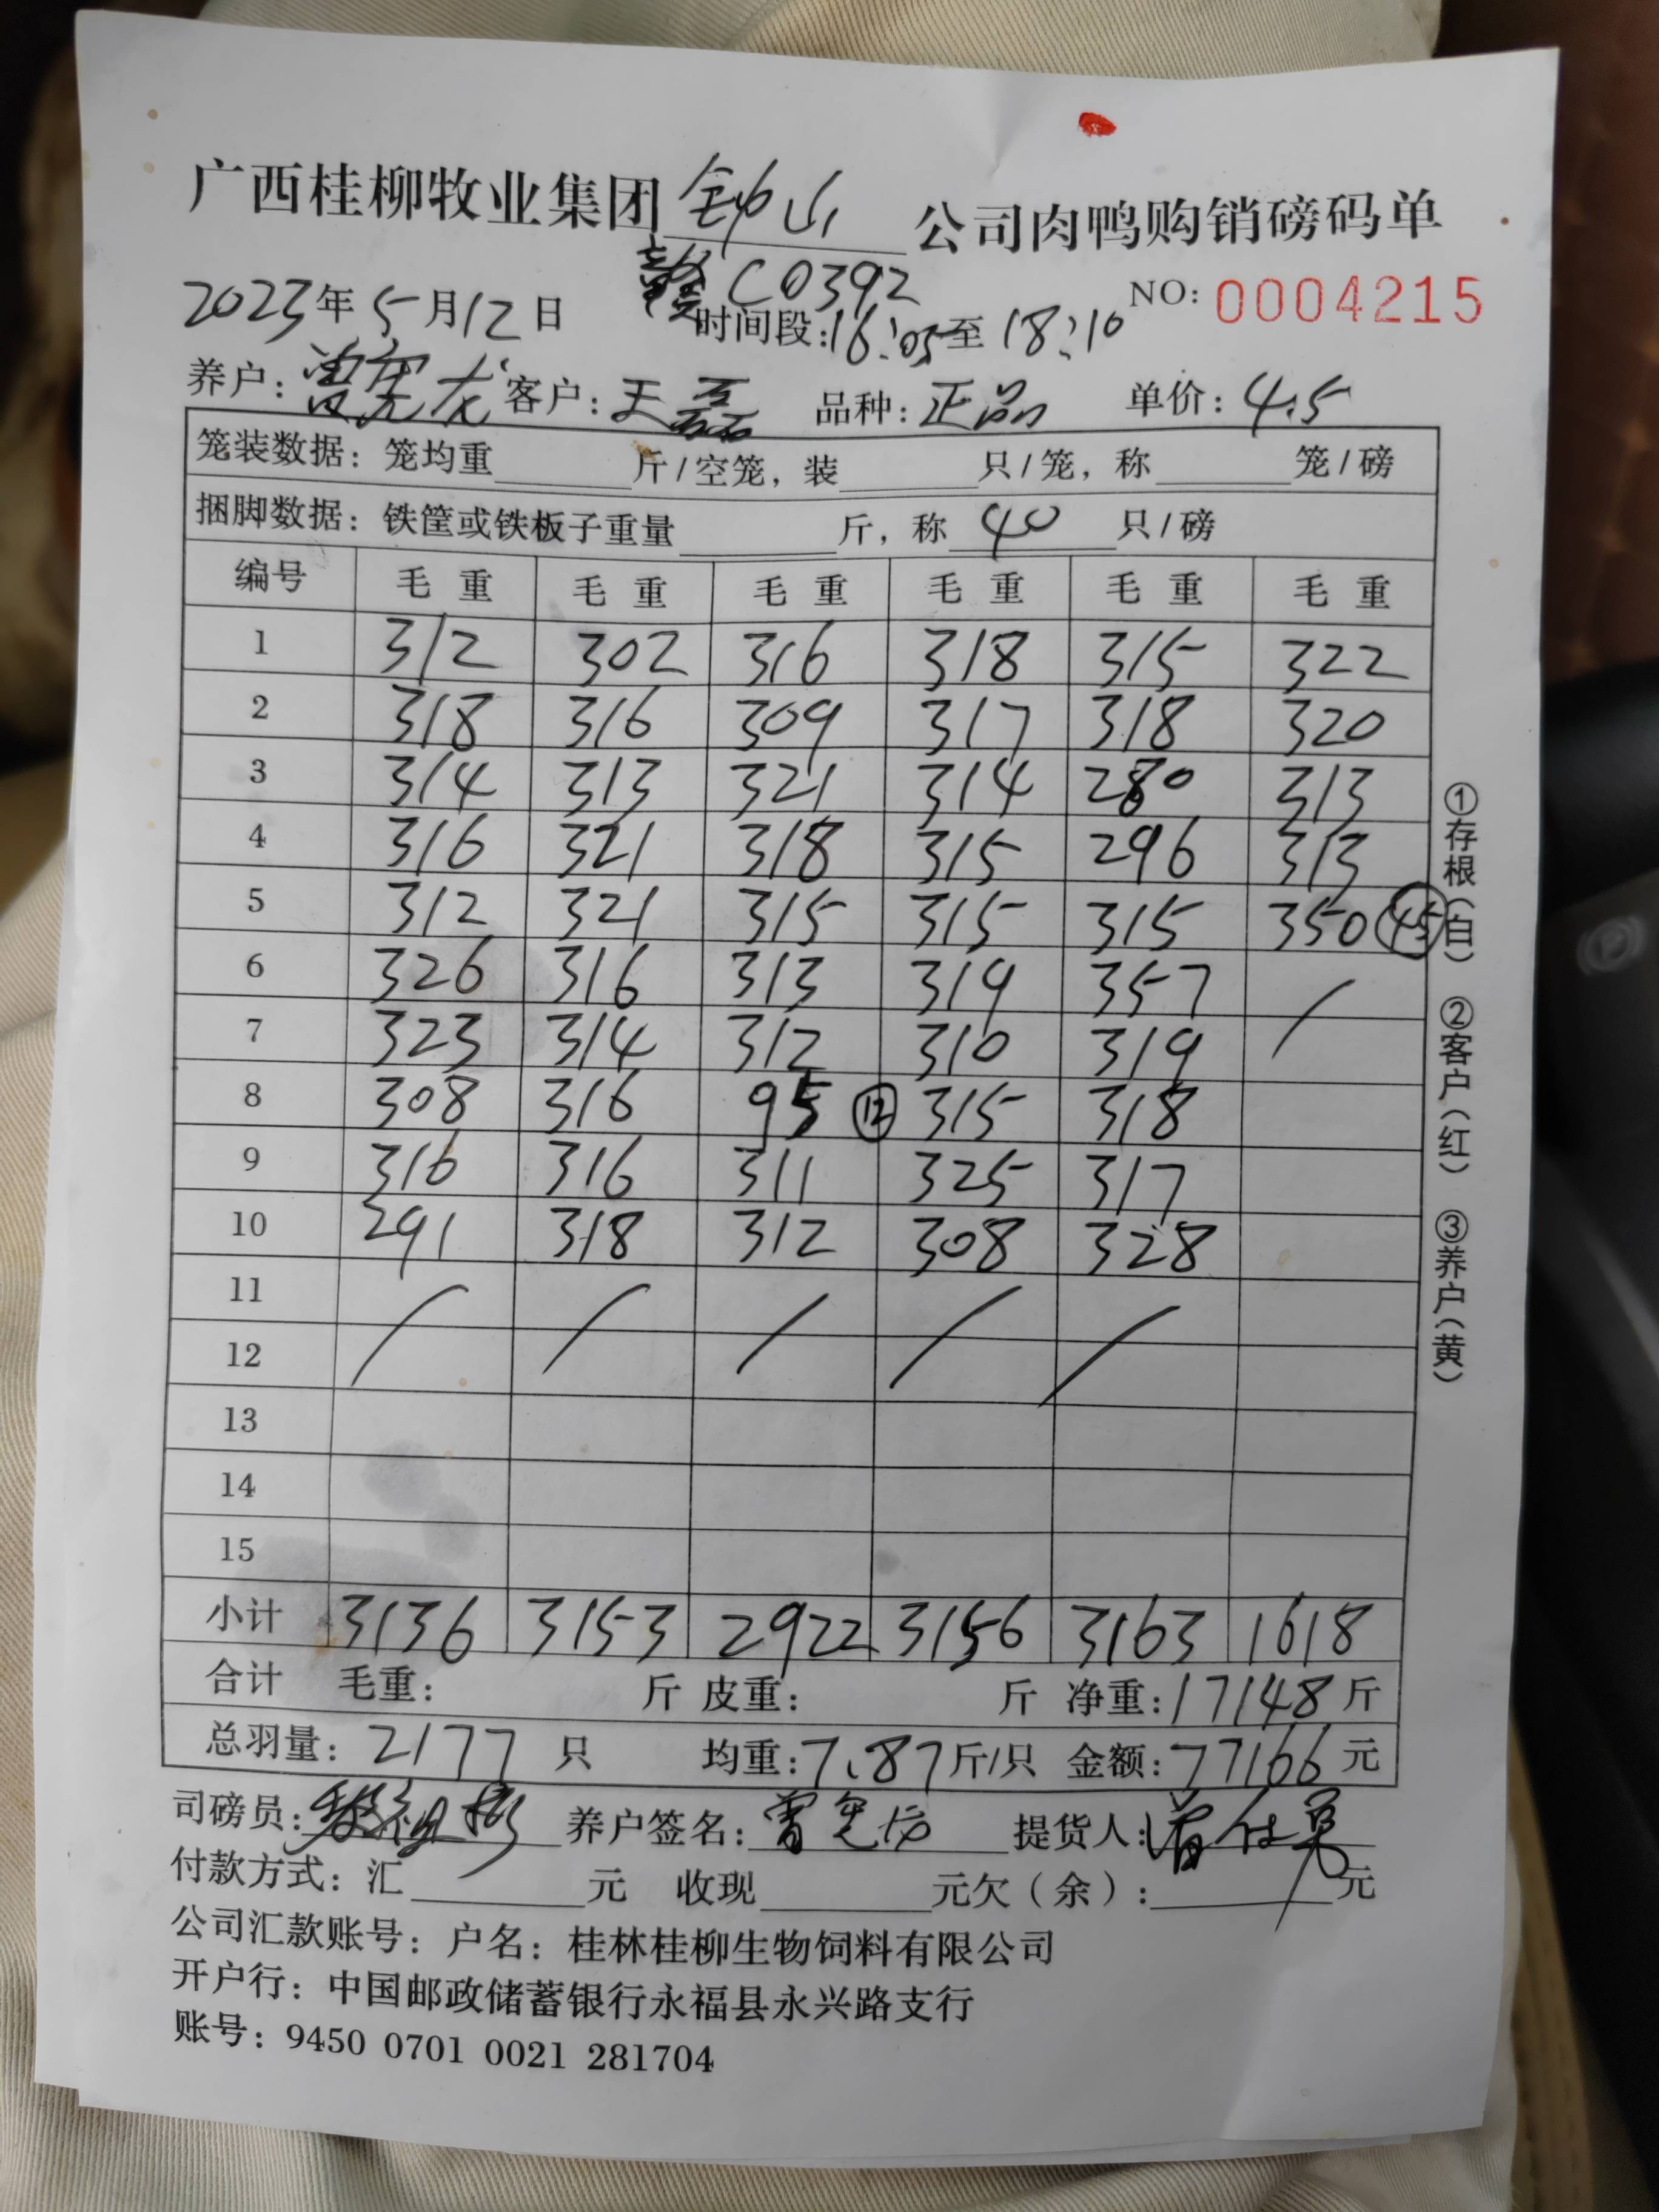 广西桂柳牧业集团 钟山 公司肉鸭购销磅码单
赣C0392
2023年5月12日 时间段:16:05至18:10 NO: 0004215
养户: 客户:王磊 品种:正品 单价:4.5
笼装数据: 笼均重 斤/空笼, 装 只/笼, 称 笼/磅
捆脚数据: 铁筐或铁板子重量 斤, 称 40 只/磅
编号 毛重 毛重 毛重 毛重 毛重 毛重
1 312 302 316 318 315 322
2 318 316 309 317 318 320
3 314 313 321 314 280 313
4 316 321 318 315 296 313
5 312 321 315 315 315 350 45
6 326 316 313 319 357 /
7 323 314 312 310 319
8 308 316 95 12 315 318
9 316 316 311 325 317
10 291 318 312 308 328
11 / / / / /
12
13
14
15
小计 3136 3153 2922 3156 3163 1618
合计 毛重: 斤 皮重: 斤 净重:17148斤
总羽量: 2177 只 均重:7.87斤/只 金额:77166元
司磅员: 养户签名: 提货人:
付款方式: 汇 元 收现 元欠(余): 元
公司汇款账号: 户名: 桂林桂柳生物饲料有限公司
开户行: 中国邮政储蓄银行永福县永兴路支行
账号: 9450 0701 0021 281704
①存根(白) ②客户(红) ③养户(黄)